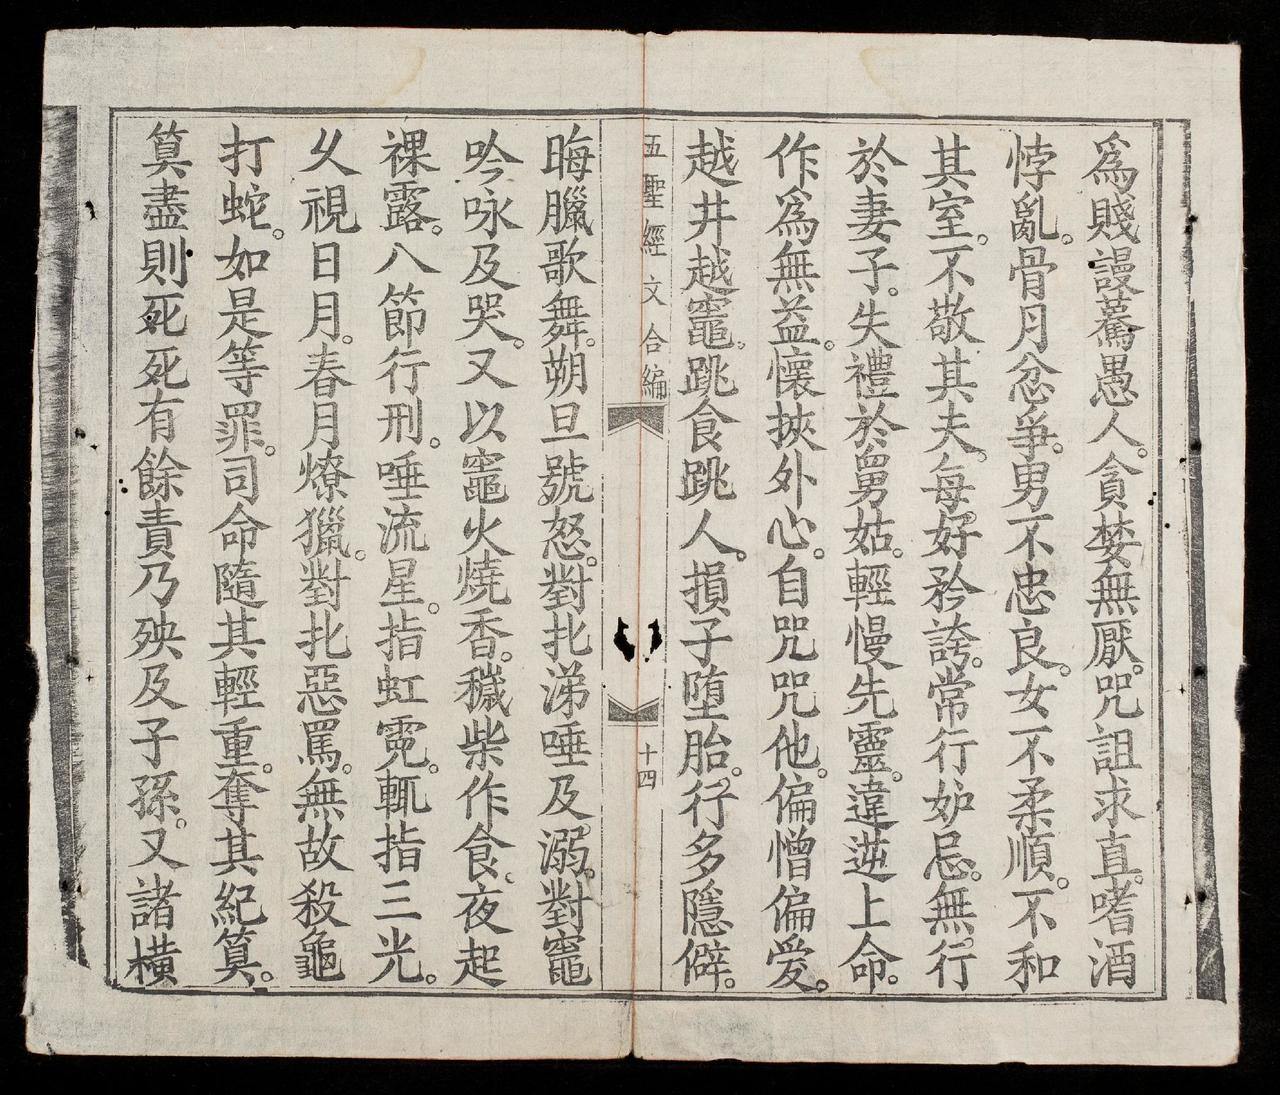 爲賤謾驀愚人。貪婪無厭。咒詛求直。嗜酒
悖亂。骨月忿爭。男不忠良。女不柔順。不和
其室。不敬其夫。每好矜誇。常行妒忌。無行
於妻子。失禮於舅姑。輕慢先靈。違逆上命。
作爲無益。懷挾外心。自咒咒他。偏憎偏爱。
越井越竈。跳食跳人。損子堕胎。行多隱僻。
五聖經文合編
十四
晦臘歌舞。朔旦號怒。對北涕唾及溺。對竈
吟咏及哭。又以竈火燒香。穢柴作食。夜起
裸露。八節行刑。唾流星。指虹霓。輒指三光。
久視日月。春月燎獵。對北惡罵。無故殺龜
打蛇。如是等罪。司命隨其輕重。奪其紀算。
算盡則死死有餘責乃殃及子孫。又諸橫